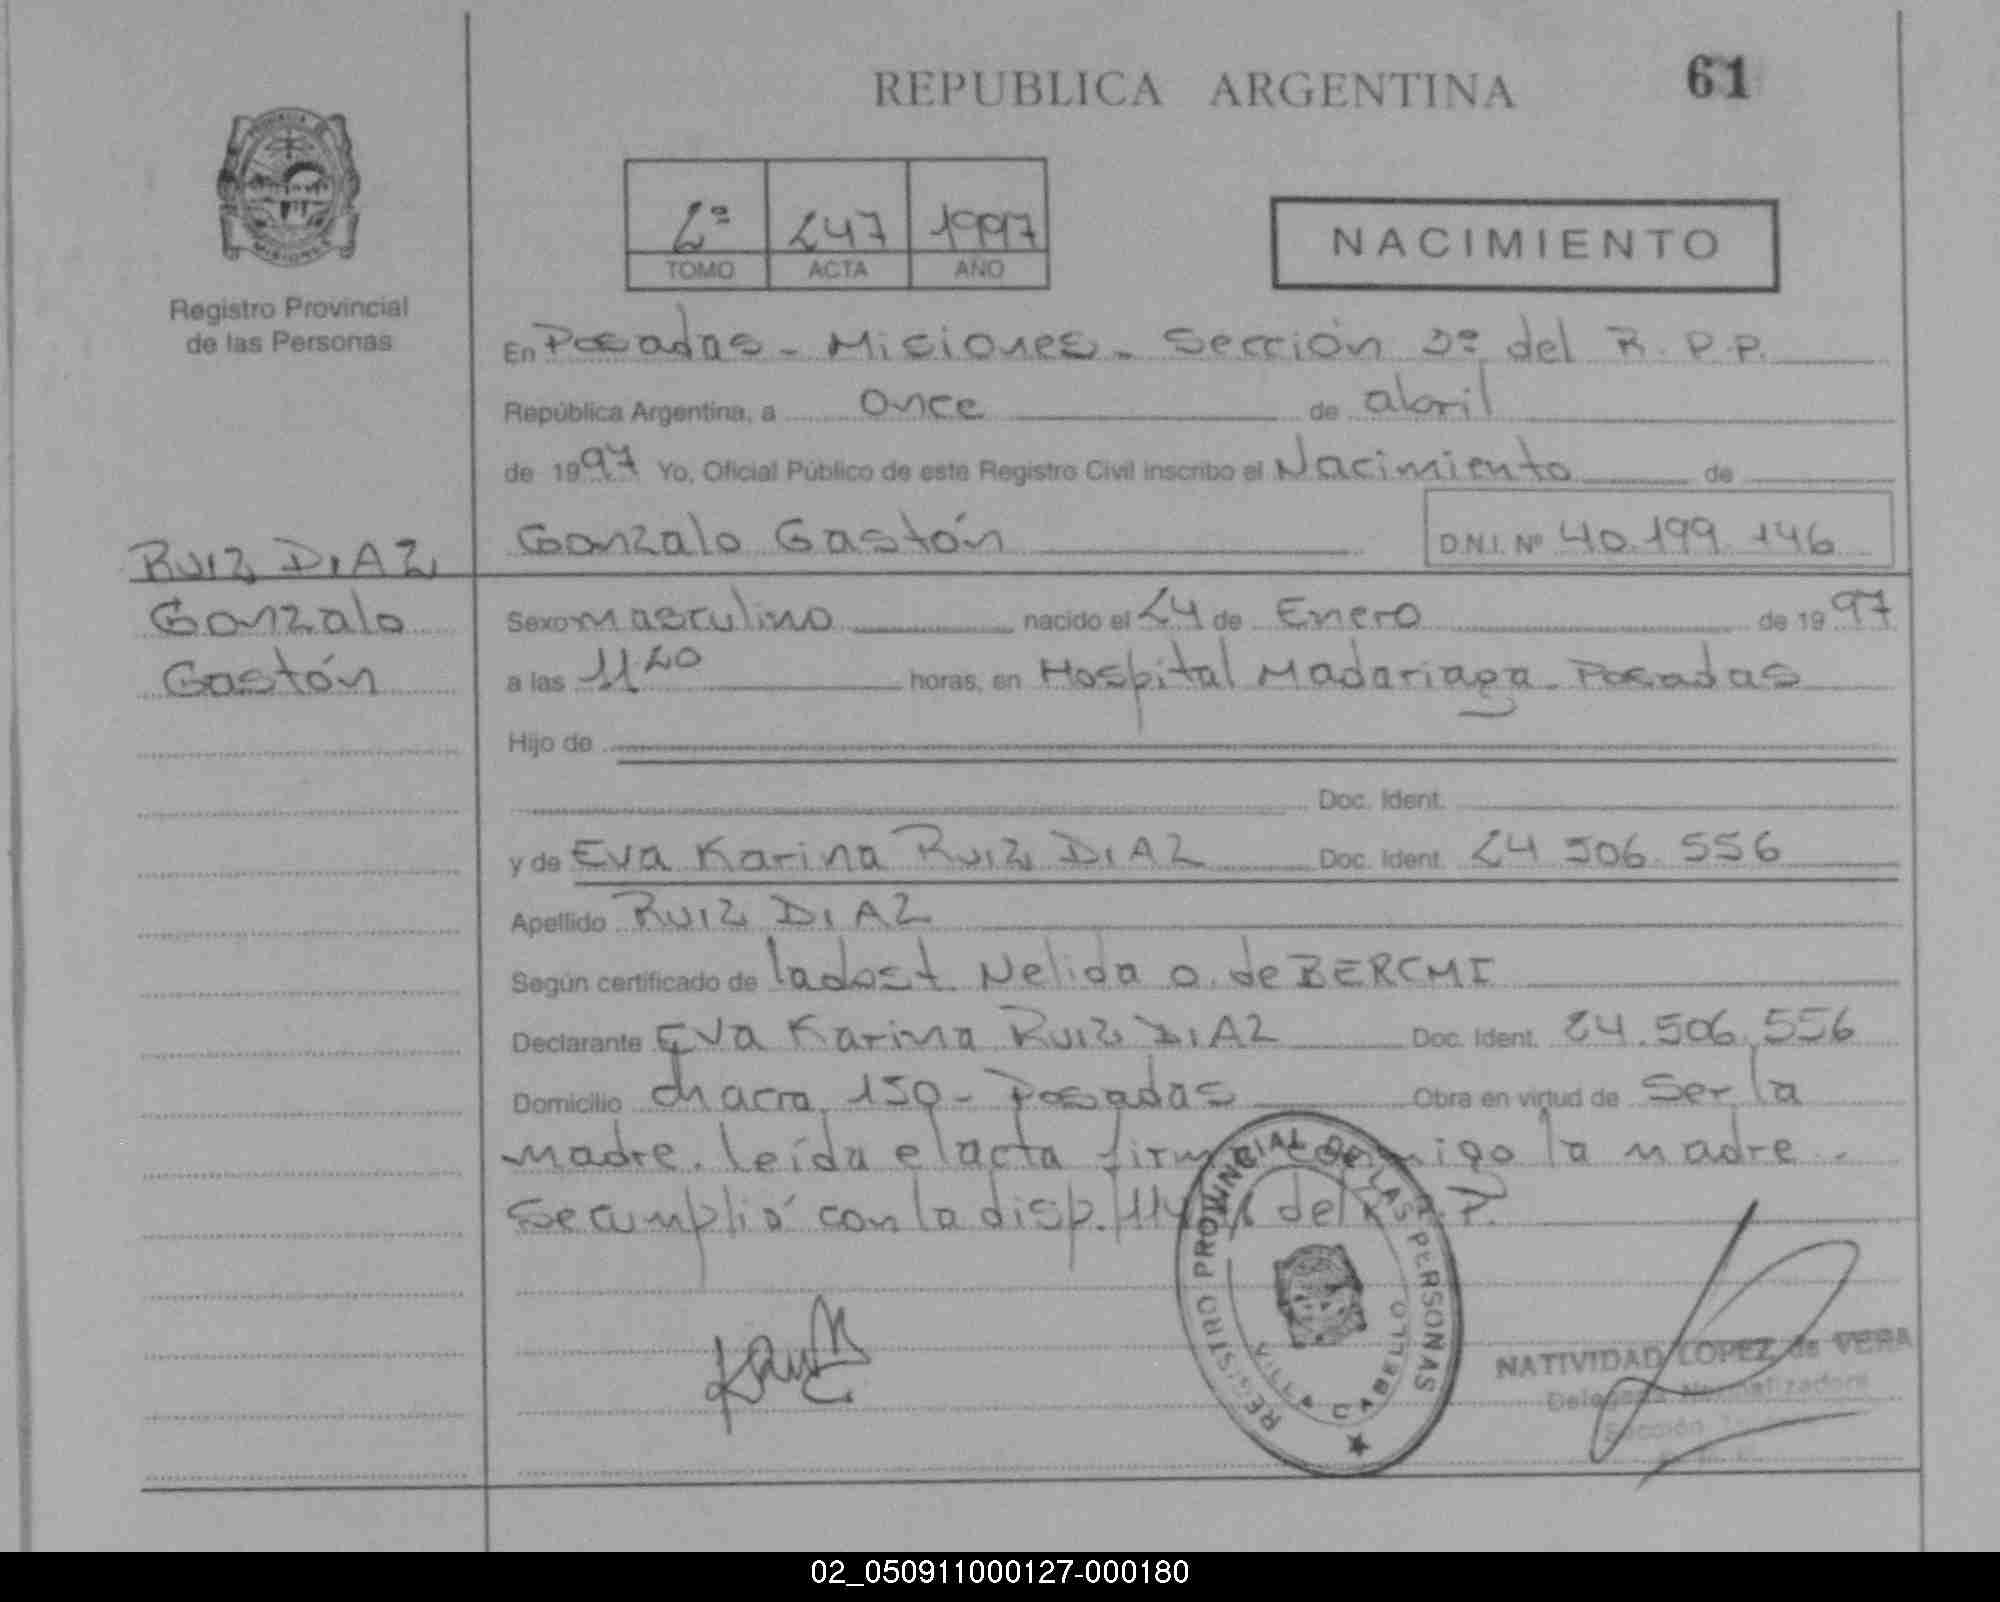 REPUBLICA ARGENTINA 61
PROVINCIA DE
MISIONES
Registro Provincial
de las Personas
2º 247 1997
TOMO ACTA AÑO
NACIMIENTO
En Posadas - Misiones - Sección 3º del R.P.P.
República Argentina, a once de abril
de 1997 Yo, Oficial Público de este Registro Civil inscribo el Nacimiento de
Gonzalo Gastón D.N.I. Nº 40.199.146
RUIZ DIAZ
Gonzalo
Gastón
Sexo masculino nacido el 24 de Enero de 1997
a las 11.20 horas, en Hospital Madariaga - Posadas
Hijo de
Doc. Ident.
y de Eva Karina RUIZ DIAZ Doc. Ident. 24.506.556
Apellido RUIZ DIAZ
Según certificado de la dost. Nelida O. de
Declarante Eva Karina RUIZ DIAZ Doc. Ident. 24.506.556
Domicilio chacra 150 - Posadas Obra en virtud de ser la
madre. Leída el acta firma conmigo la madre.
Se cumplió con la disp. del R.P.P.
REGISTRO PROVINCIAL DE LAS PERSONAS
VILLA CABELLO
NATIVIDAD LOPEZ de VERA
Delegada Normalizadora
Sección
02_050911000127-000180